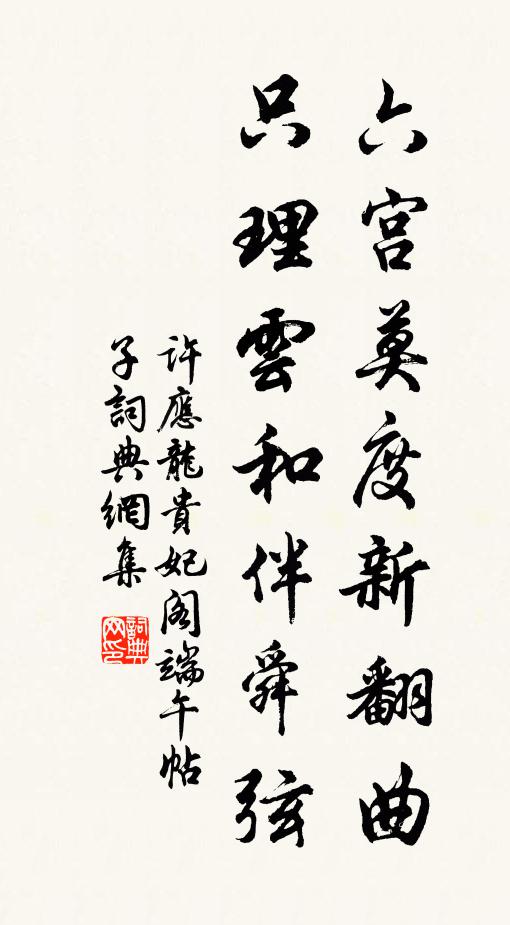 六宮莫度新翻曲
只理雲和伴舜弦
許應龍貴妃閣端午帖
子詞典網集
詞典网印